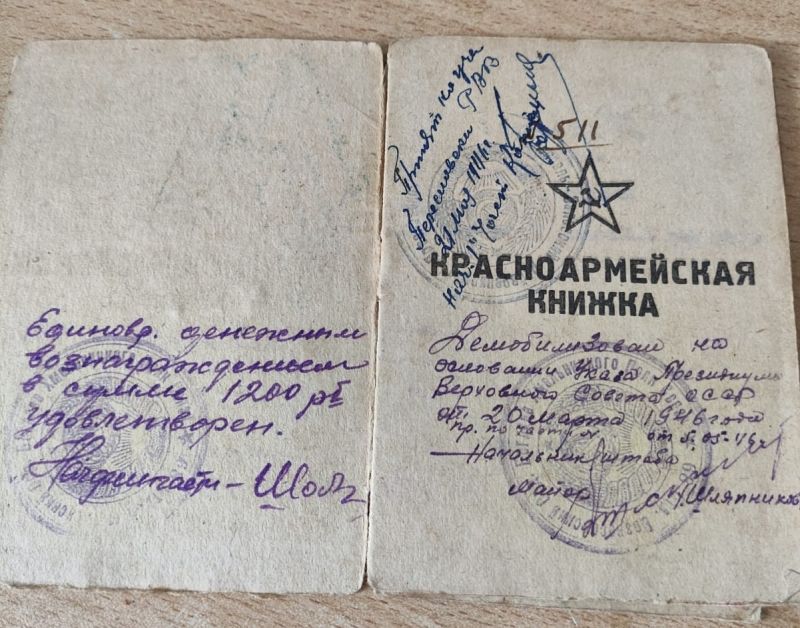 Единовр. денежным
вознаграждением
в сумме 1200 рб
удовлетворен.
Начфинчасти – Шол
Принят на уч
Переславски РВК
511
КРАСНОАРМЕЙСКАЯ
КНИЖКА
Демобилизован на
основании Указа Президиума
Верховного Совета СССР
от 20 марта 1946 года
пр. по части № от 5.05.46г
Начальник штаба
майор Шляпников